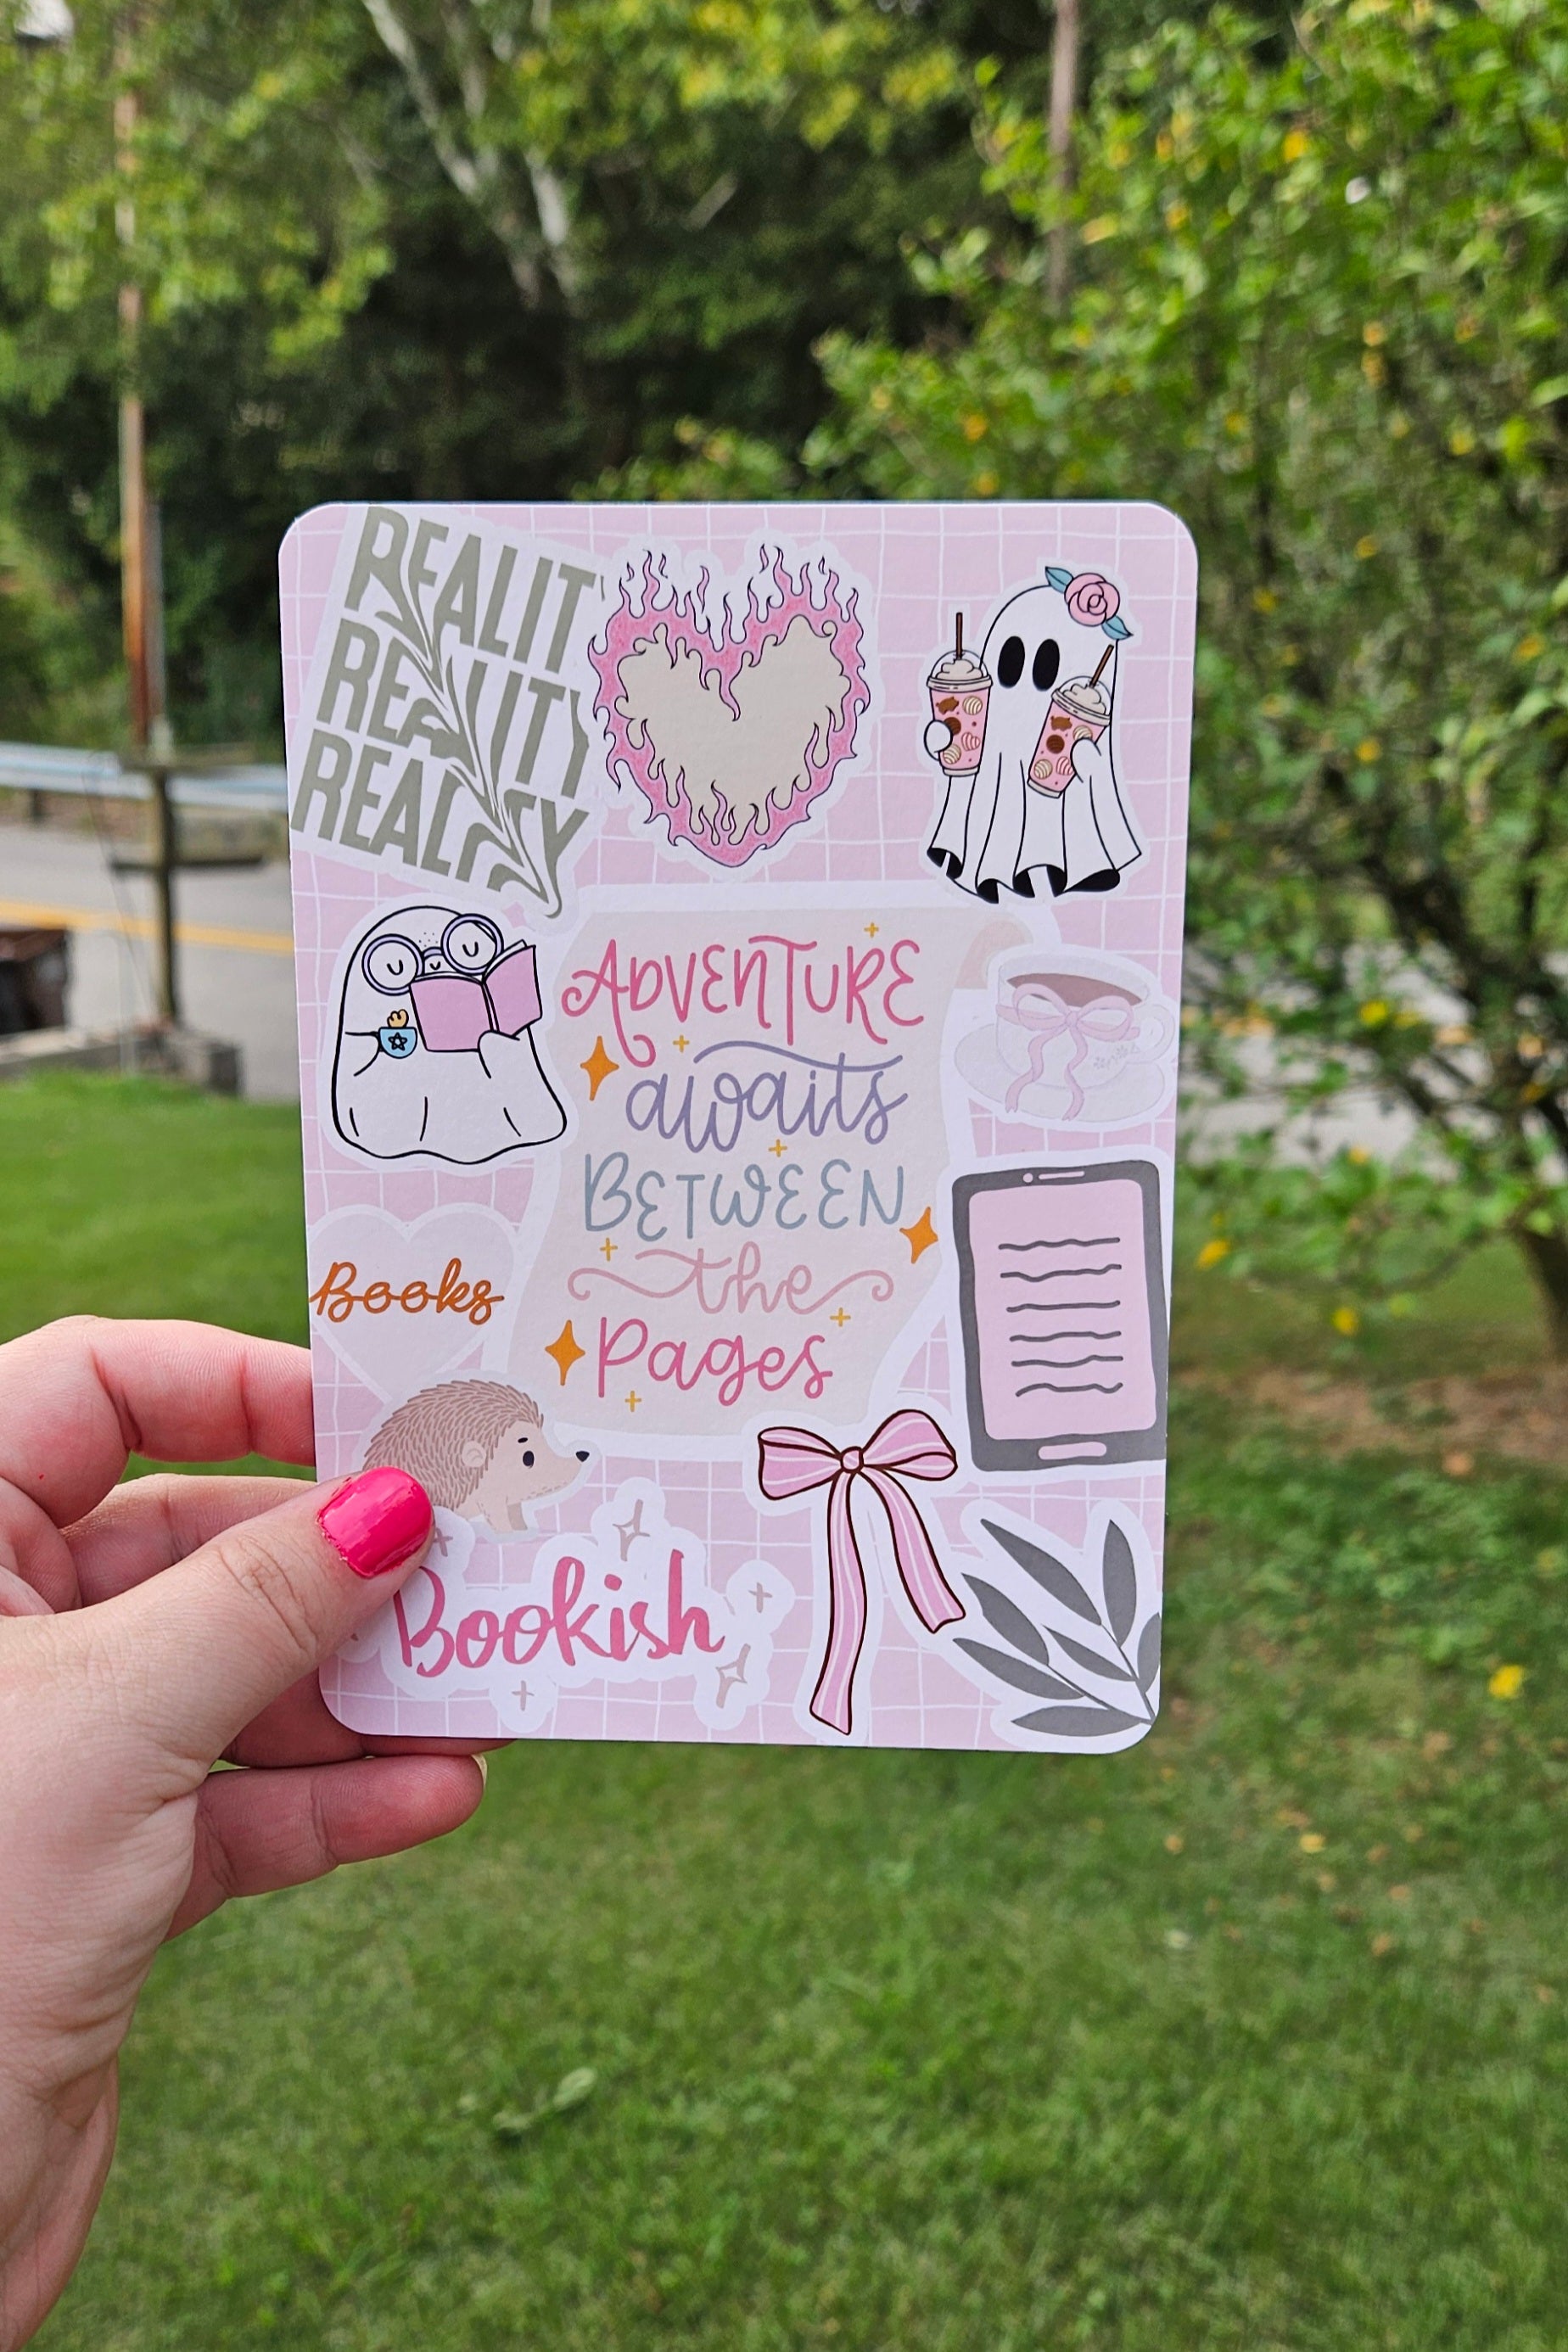 REALIT
REALITY
REALITY
ADVENTURE
awaits
BETWEEN
the
Pages
Books
Bookish